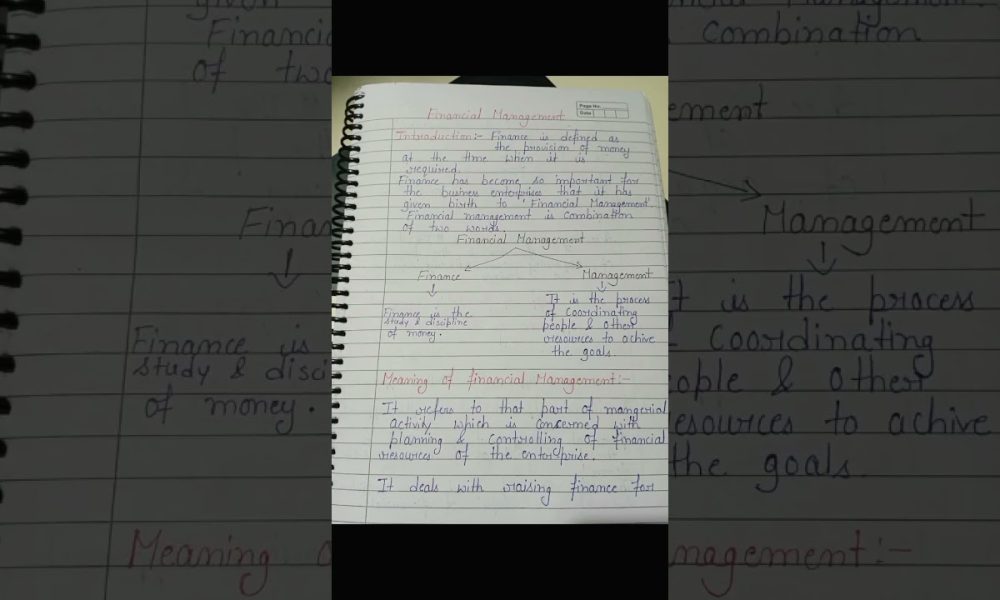 Page No.
Date
Financial Management
Introduction:- Finance is defined as
the provision of money
at the time when it is
required.
Finance has become so important for
the business enterprises that it has
given birth to 'Financial Management'.
Financial management is combination
of two words.
Financial Management
Finance Management
Finance is the
study & discipline
of money.
It is the process
of coordinating
people & other
resources to achive
the goals.
Meaning of financial Management:-
It refers to that part of mangerial
activity which is concerned with
planning & controlling of financial
resources of the enterprise.
It deals with raising finance for